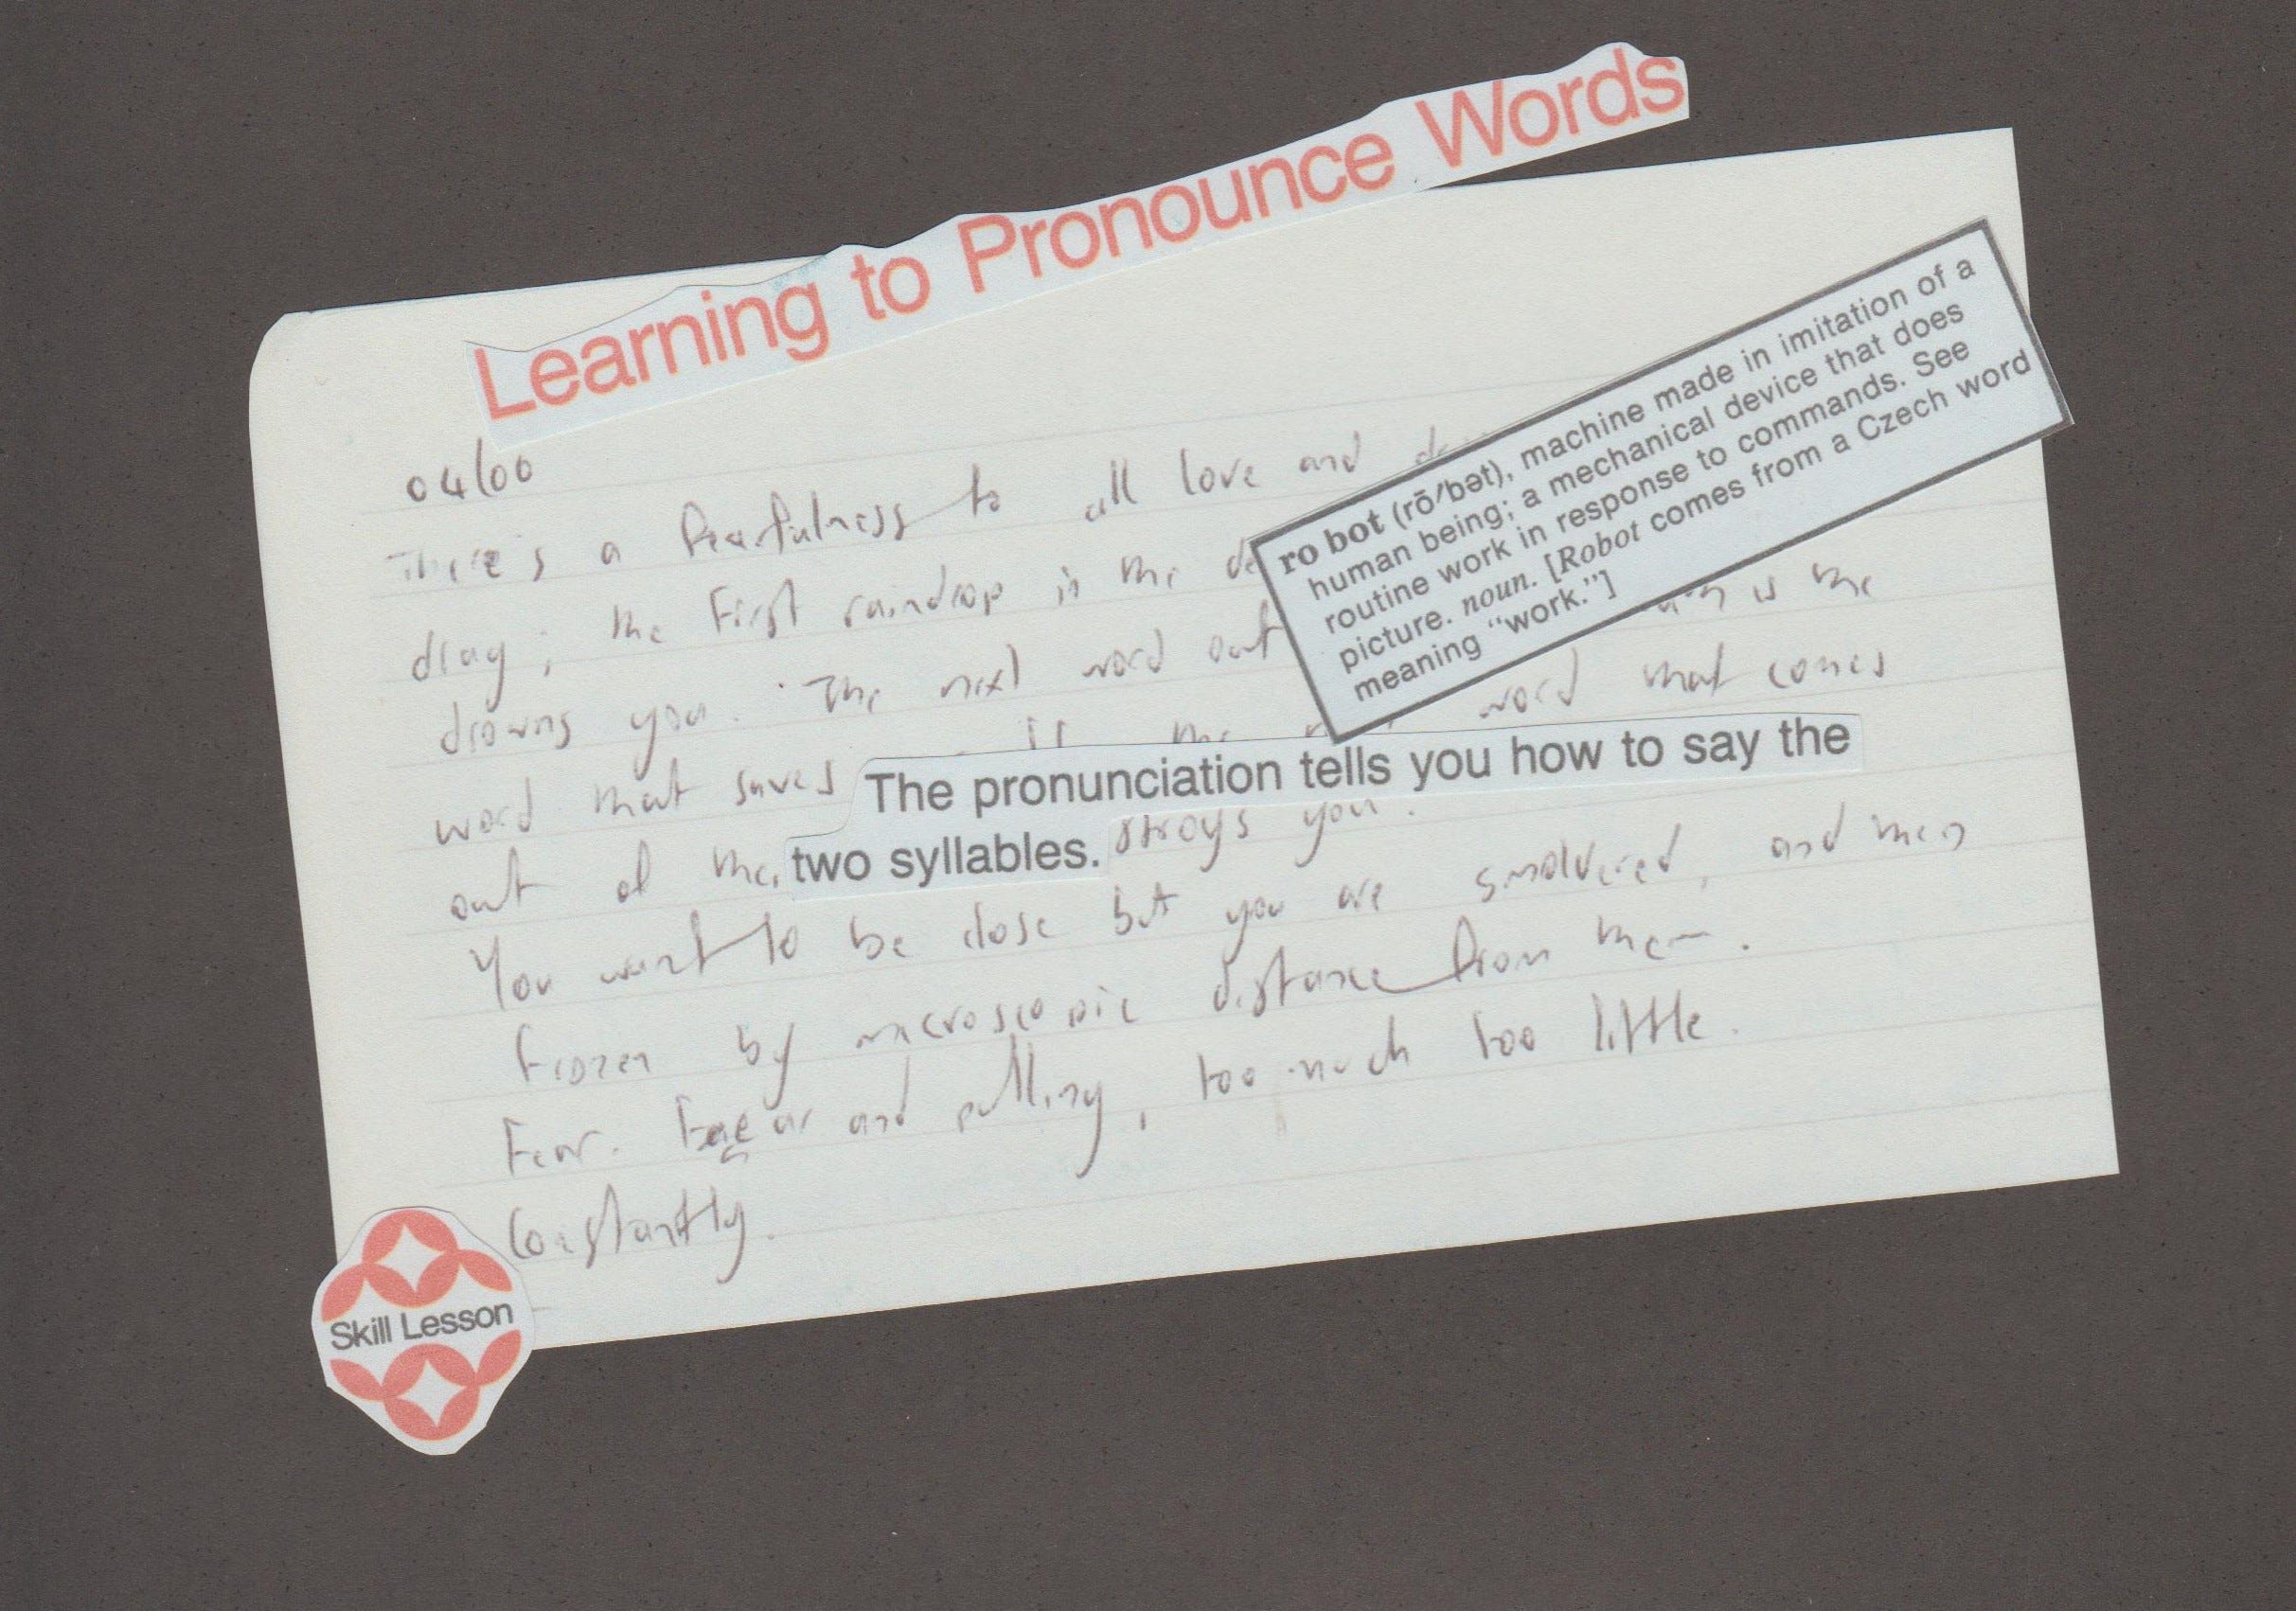 Learning to Pronounce Words
ro bot (rō′bət), machine made in imitation of a
human being; a mechanical device that does
routine work in response to commands. See
picture. noun. [Robot comes from a Czech word
meaning "work."]
04/00
There's a fearfulness to all love and
drag; the first raindrop in the
drowns you. The next word out is the
word that saves If the word that comes
out of the
The pronunciation tells you how to say the
two syllables.
stroys you.
You want to be close but you are smoldered, and then
frozen by microscopic distance from them.
Fear. Fear and pulling, too much too little.
Constantly.
Skill Lesson